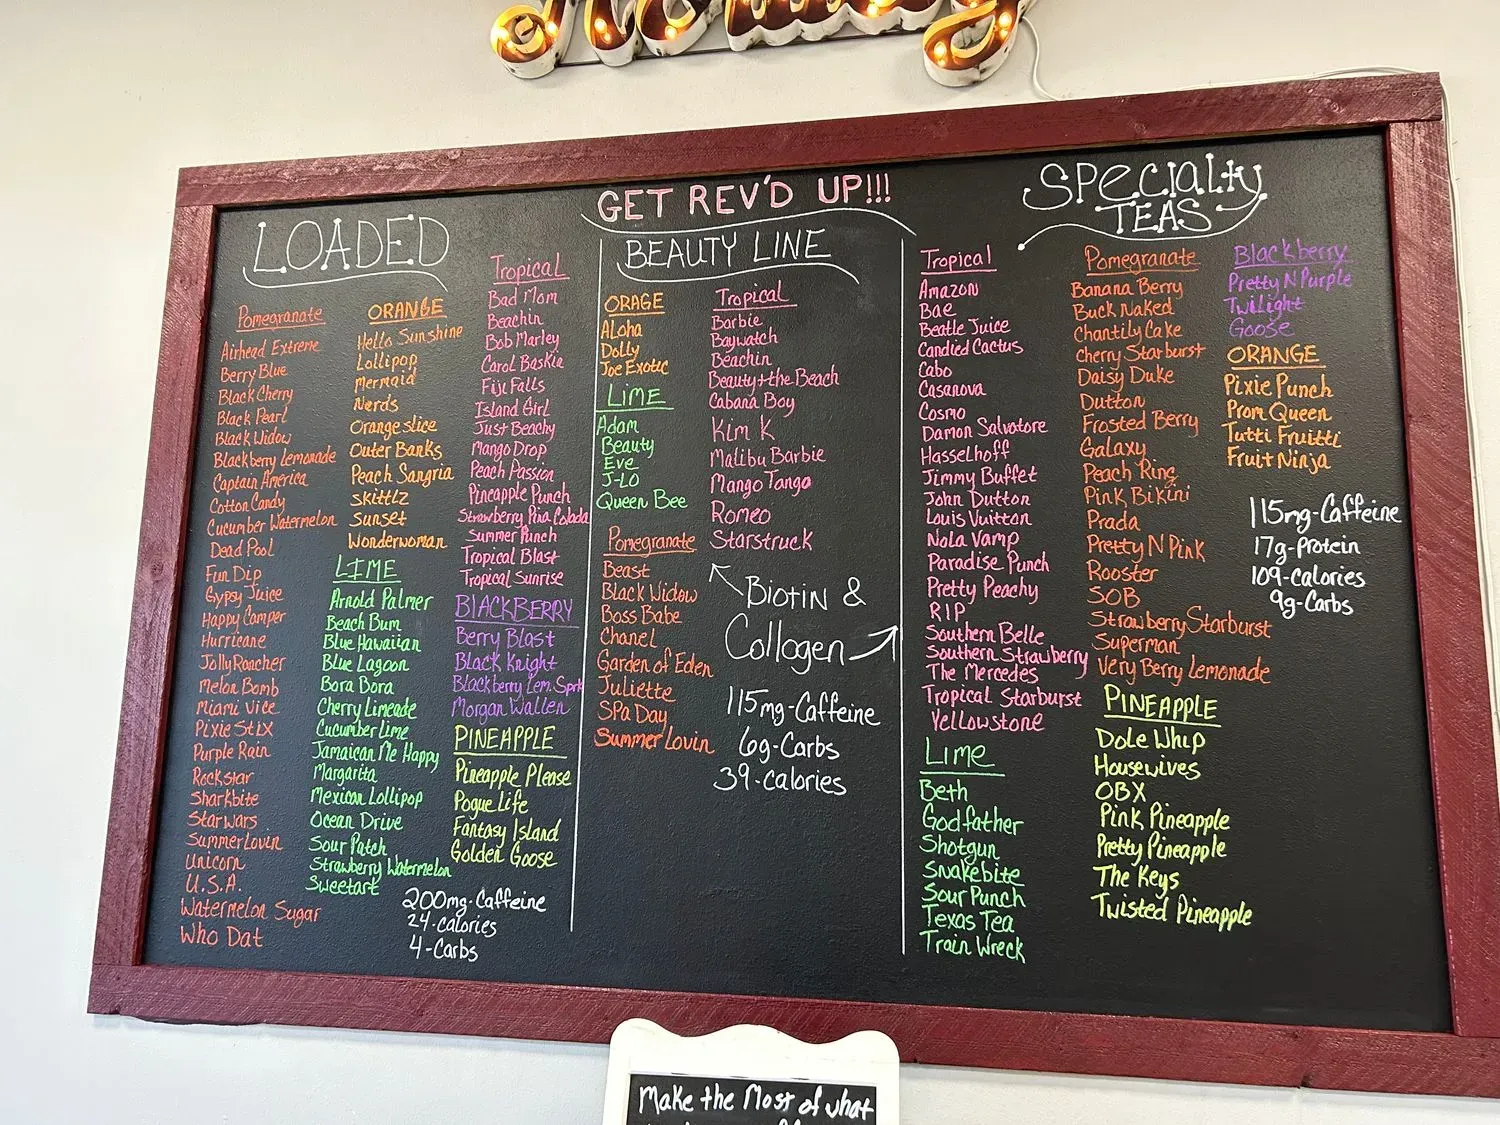 GET REV'D UP!!!
LOADED
Pomegranate
Airhead Extreme
Berry Blue
Black Cherry
Black Pearl
Black Widow
Blackberry Lemonade
Captain America
Cotton Candy
Cucumber Watermelon
Dead Pool
Fun Dip
Gypsy Juice
Happy Camper
Hurricane
Jolly Rancher
Melon Bomb
Miami Vice
Pixie Stix
Purple Rain
Rockstar
Sharkbite
Star Wars
Summer Lovin
Unicorn
U.S.A.
Watermelon Sugar
Who Dat
ORANGE
Hello Sunshine
Lollipop
Mermaid
Nerds
Orange slice
Outer Banks
Peach Sangria
Skittlz
Sunset
Wonderwoman
LIME
Arnold Palmer
Beach Bum
Blue Hawaiian
Blue Lagoon
Bora Dora
Cherry Limeade
Cucumber Lime
Jamaican Me Happy
Margarita
Mexican Lollipop
Ocean Drive
Sour Patch
Strawberry Watermelon
Sweetart
Tropical
Bad Mom
Beachin
Bob Marley
Carol Baskin
Fiji Falls
Island Girl
Just Beachy
Mango Drop
Peach Passion
Pineapple Punch
Strawberry Pina Colada
Summer Punch
Tropical Blast
Tropical Sunrise
BLACKBERRY
Berry Blast
Black Knight
Blackberry Lem. Sprk
Morgan Wallen
PINEAPPLE
Pineapple Please
Pogue Life
Fantasy Island
Golden Goose
200mg-Caffeine
24-calories
4-Carbs
BEAUTY LINE
ORAGE
Aloha
Dolly
Joe Exotic
LIME
Adam
Beauty
Eve
J-LO
Queen Bee
Pomegranate
Beast
Black Widow
Boss Babe
Chanel
Garden of Eden
Juliette
SPA Day
Summer Lovin
Tropical
Barbie
Baywatch
Beachin
Beauty+the Beach
Cabana Boy
Kim K
Malibu Barbie
Mango Tango
Romeo
Starstruck
Biotin &
Collogen
115mg-Caffeine
6g-Carbs
39-calories
SPECIALTY
TEAS
Tropical
Amazon
Bae
Beatle Juice
Candied Cactus
Cabo
Casanova
Cosmo
Damon Salvatore
Hasselhoff
Jimmy Buffet
John Dutton
Louis Vuitton
Nola Vamp
Paradise Punch
Pretty Peachy
RIP
Southern Belle
Southern Strawberry
The Mercedes
Tropical Starburst
Yellowstone
Lime
Beth
Godfather
Shotgun
Snakebite
Sour Punch
Texas Tea
Train Wreck
Pomegranate
Banana Berry
Buck Naked
Chantily Cake
Cherry Starburst
Daisy Duke
Dutton
Frosted Berry
Galaxy
Peach Ring
Pink Bikini
Prada
Pretty N Pink
Rooster
SOB
Strawberry Starburst
Superman
Very Berry Lemonade
PINEAPPLE
Dole Whip
Housewives
OBX
Pink Pineapple
Pretty Pineapple
The Keys
Twisted Pineapple
Blackberry
Pretty N Purple
Twilight
Goose
ORANGE
Pixie Punch
Prom Queen
Tutti Fruitti
Fruit Ninja
115mg-Caffeine
17g-Protein
109-Calories
9g-Carbs
Make the Most of what